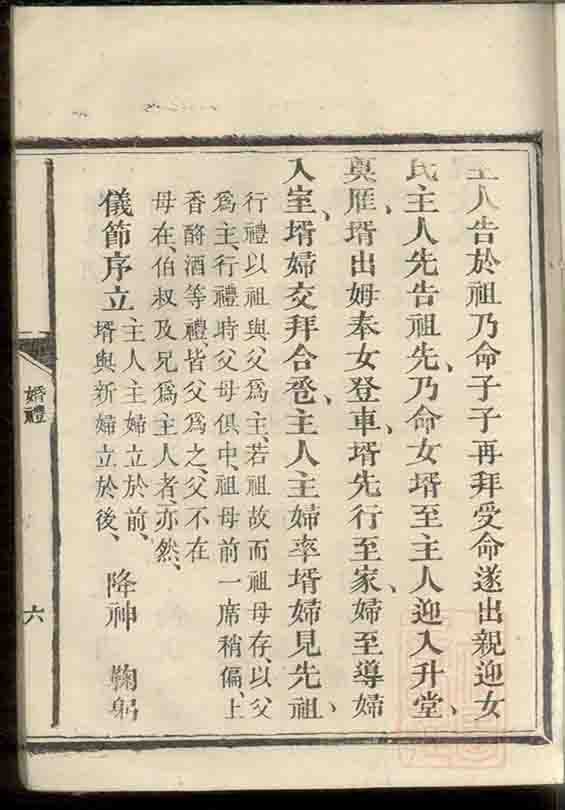 主人告於祖乃命子子再拜受命遂出親迎女
氏主人先告祖先、乃命女壻至主人迎入升堂、
奠雁、壻出姆奉女登車、壻先行至家、婦至導婦
入室、壻婦交拜合卺、主人主婦率壻婦見先祖、
行禮以祖與父爲主、若祖故而祖母存、以父
爲主、行禮時父母俱中、祖母前一席稍偏、上
香酹酒等禮、皆父爲之、父不在
母在、伯叔及兄爲主人者、亦然、
儀節序立、主人主婦立於前、壻與新婦立於後、 降神 鞠躬
婚禮
六